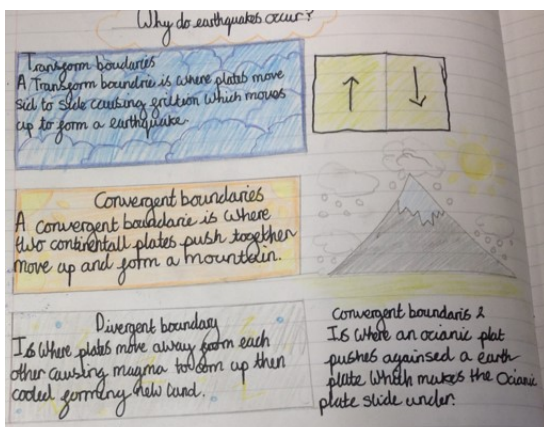 Why do earthquakes occur?
Transgorm boudaries
A Transgorm boundrie is where plates move
sid to side causing friction which moves
up to form a earthquake.
Convergent boundaries
A convergent boundarie is where
two continentall plates push together
move up and form a mountain.
Divergent boundary
Is where plates move away from each
other causing magma to com up then
cooled forming new land.
Convergent boundaris 2
Is where an ocianic plat
pushes againsed a earth
plate which makes the Ocianic
plate slide under.